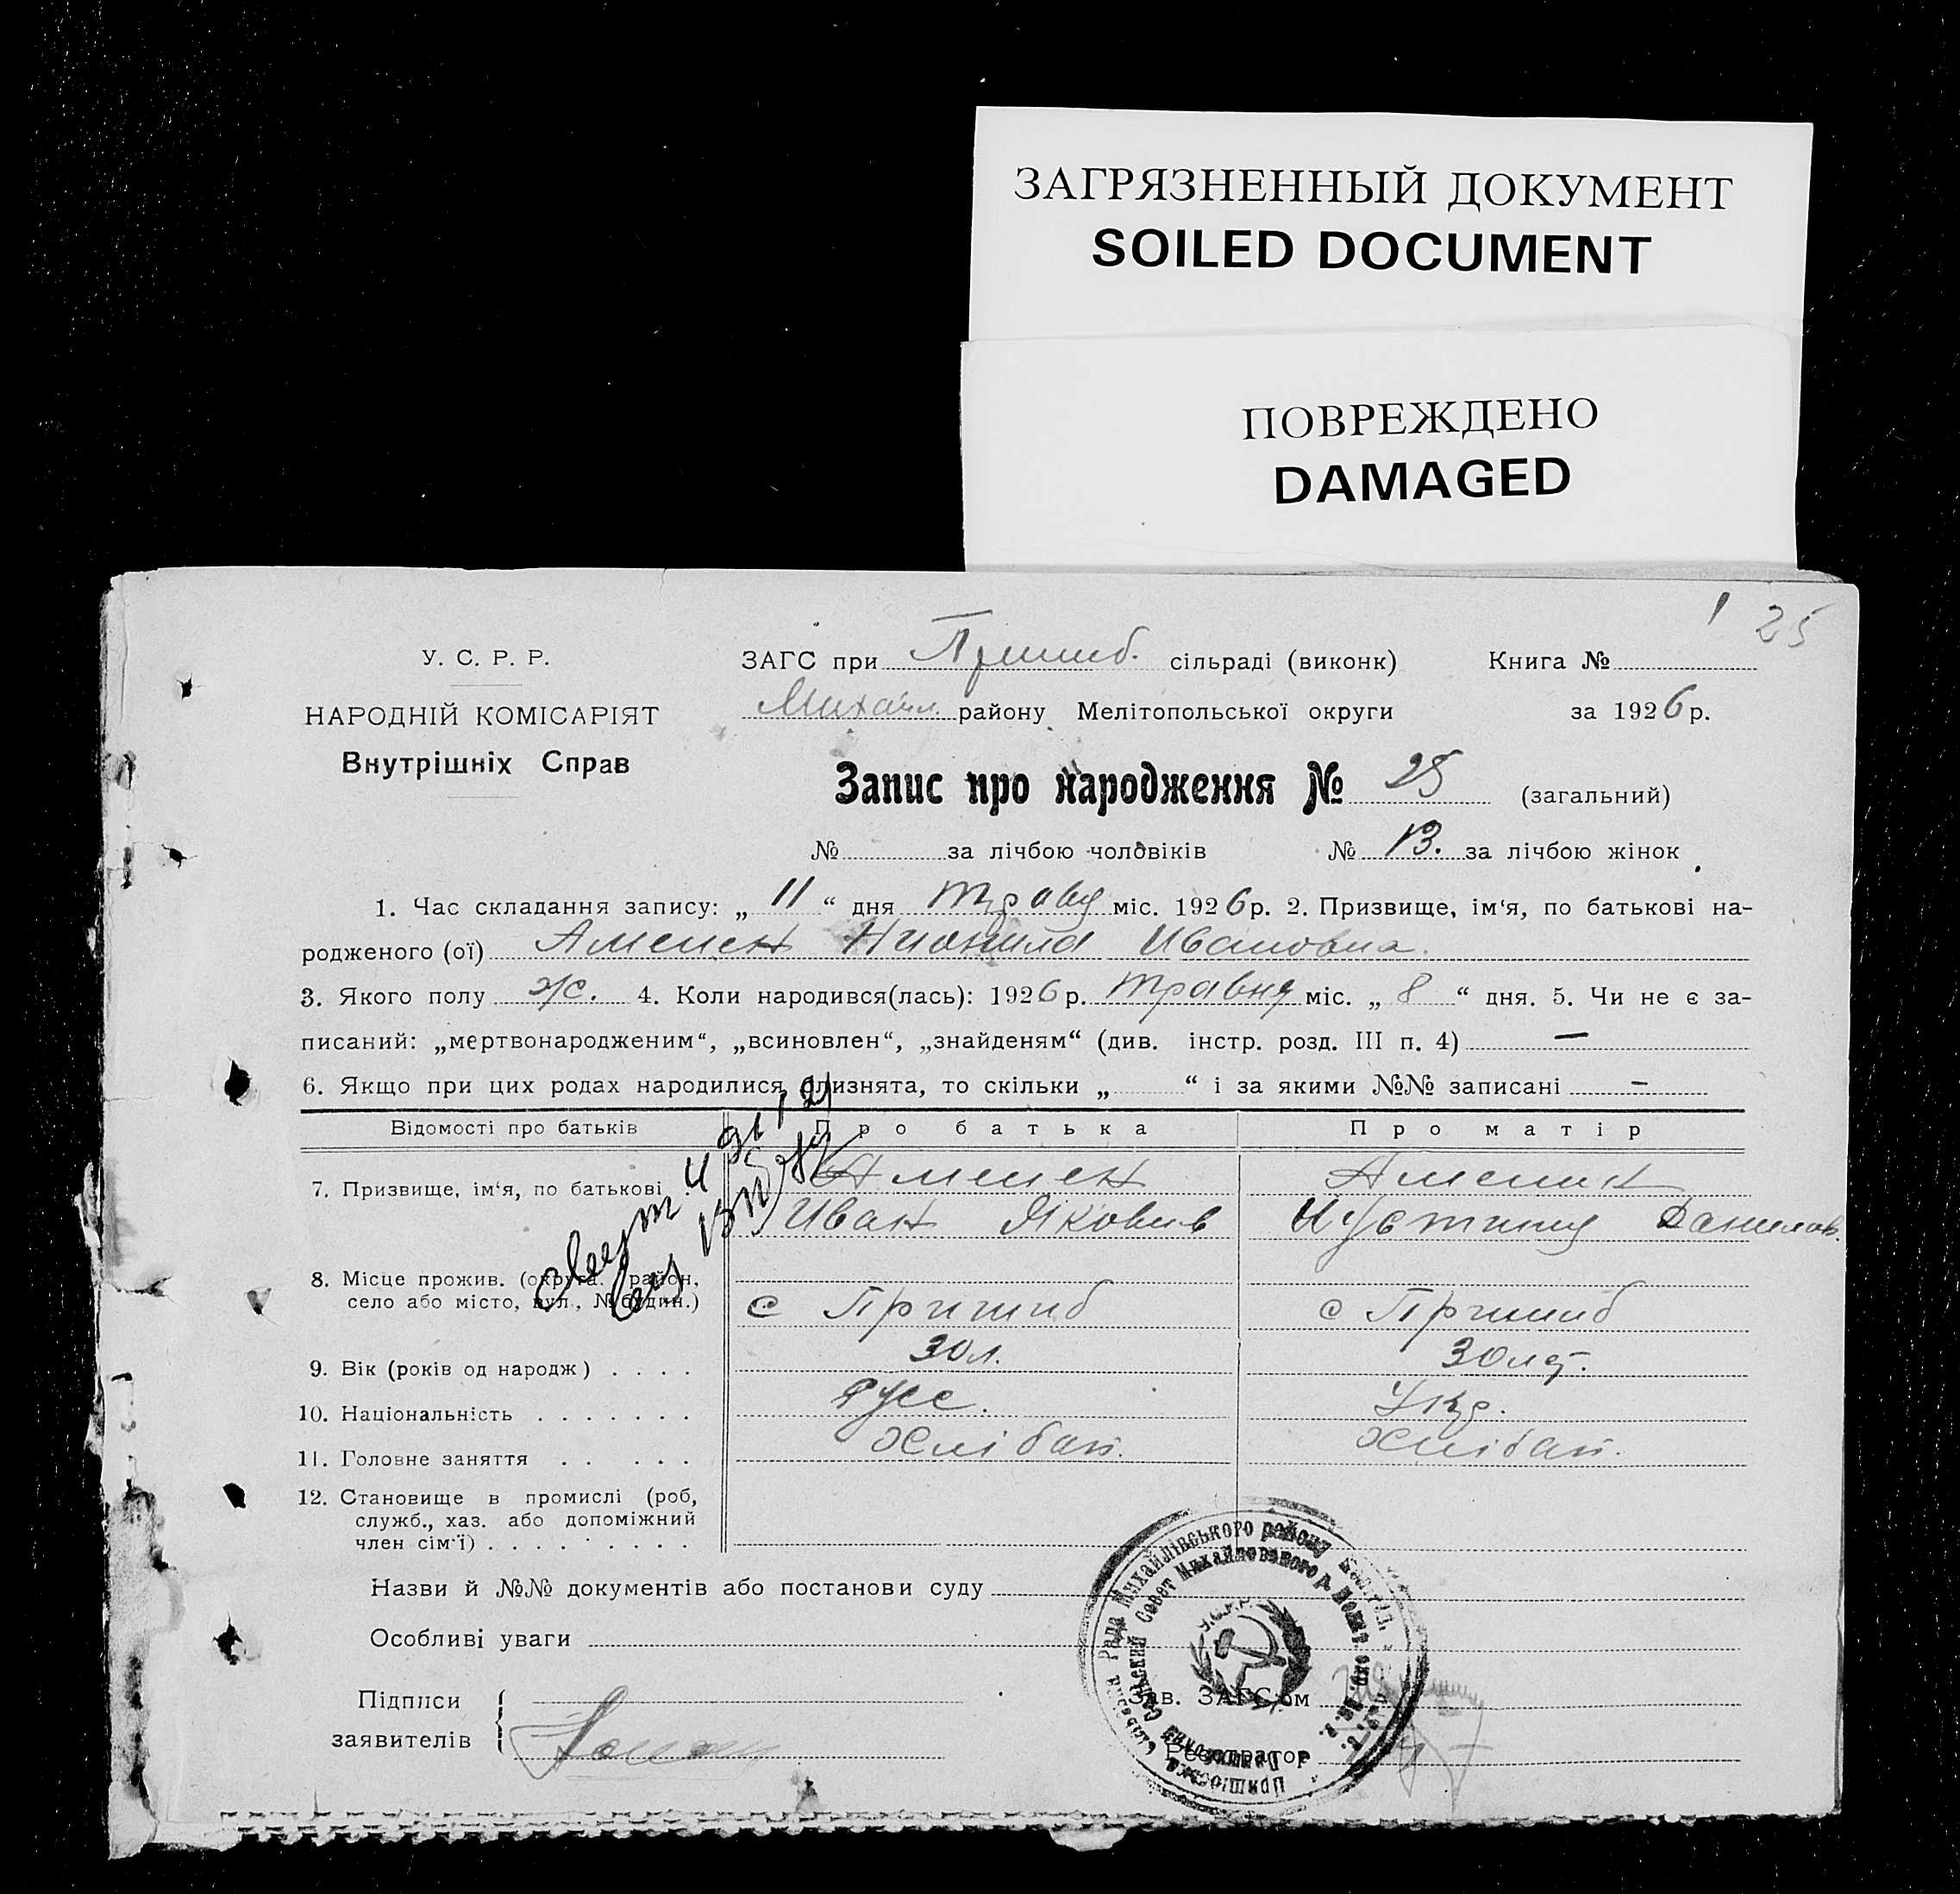 ЗАГРЯЗНЕННЫЙ ДОКУМЕНТ
SOILED DOCUMENT
ПОВРЕЖДЕНО
DAMAGED
25
У. С. Р. Р.
НАРОДНІЙ КОМІСАРІЯТ
Внутрішніх Справ
ЗАГС при Пришиб. сільраді (виконк) Книга №
Михайл. району Мелітопольської округи за 1926 р.
Запис про народження № 25 (загальний)
№ за лічбою чоловіків № 13. за лічбою жінок
1. Час складання запису: „ 11 “ дня травня міс. 1926 р. 2. Призвище, ім‘я, по батькові на-
родженого (ої) Ивановна.
3. Якого полу ж. 4. Коли народився(лась): 1926 р. травня міс. „ 8 “ дня. 5. Чи не є за-
писаний: „мертвонародженим“, „всиновлен“, „знайденям“ (див. інстр. розд. III п. 4) —
6. Якщо при цих родах народилися близнята, то скільки „ “ і за якими №№ записані —
Відомості про батьків Про батька Про матір
7. Призвище, ім‘я, по батькові
Иван Яковив Данилов.
8. Місце прожив. (округа. район,
село або місто, вул., № будин.) с Пришиб с Пришиб
9. Вік (років од народж) . . . . 30 л. 30 лет.
10. Національність . . . . . . . Русс. Укр.
11. Головне заняття . . . . . Хлібай. Хлібай.
12. Становище в промислі (роб,
служб., хаз. або допоміжний
член сім‘ї) . . . . . . . . .
Назви й №№ документів або постанови суду
Особливі уваги
Підписи
заявителів
Зав. ЗАГС‘ом
Реєстратор
Рада Михайлівського району
Сельский Совет Михайловского р.
У.С.Р.Р.